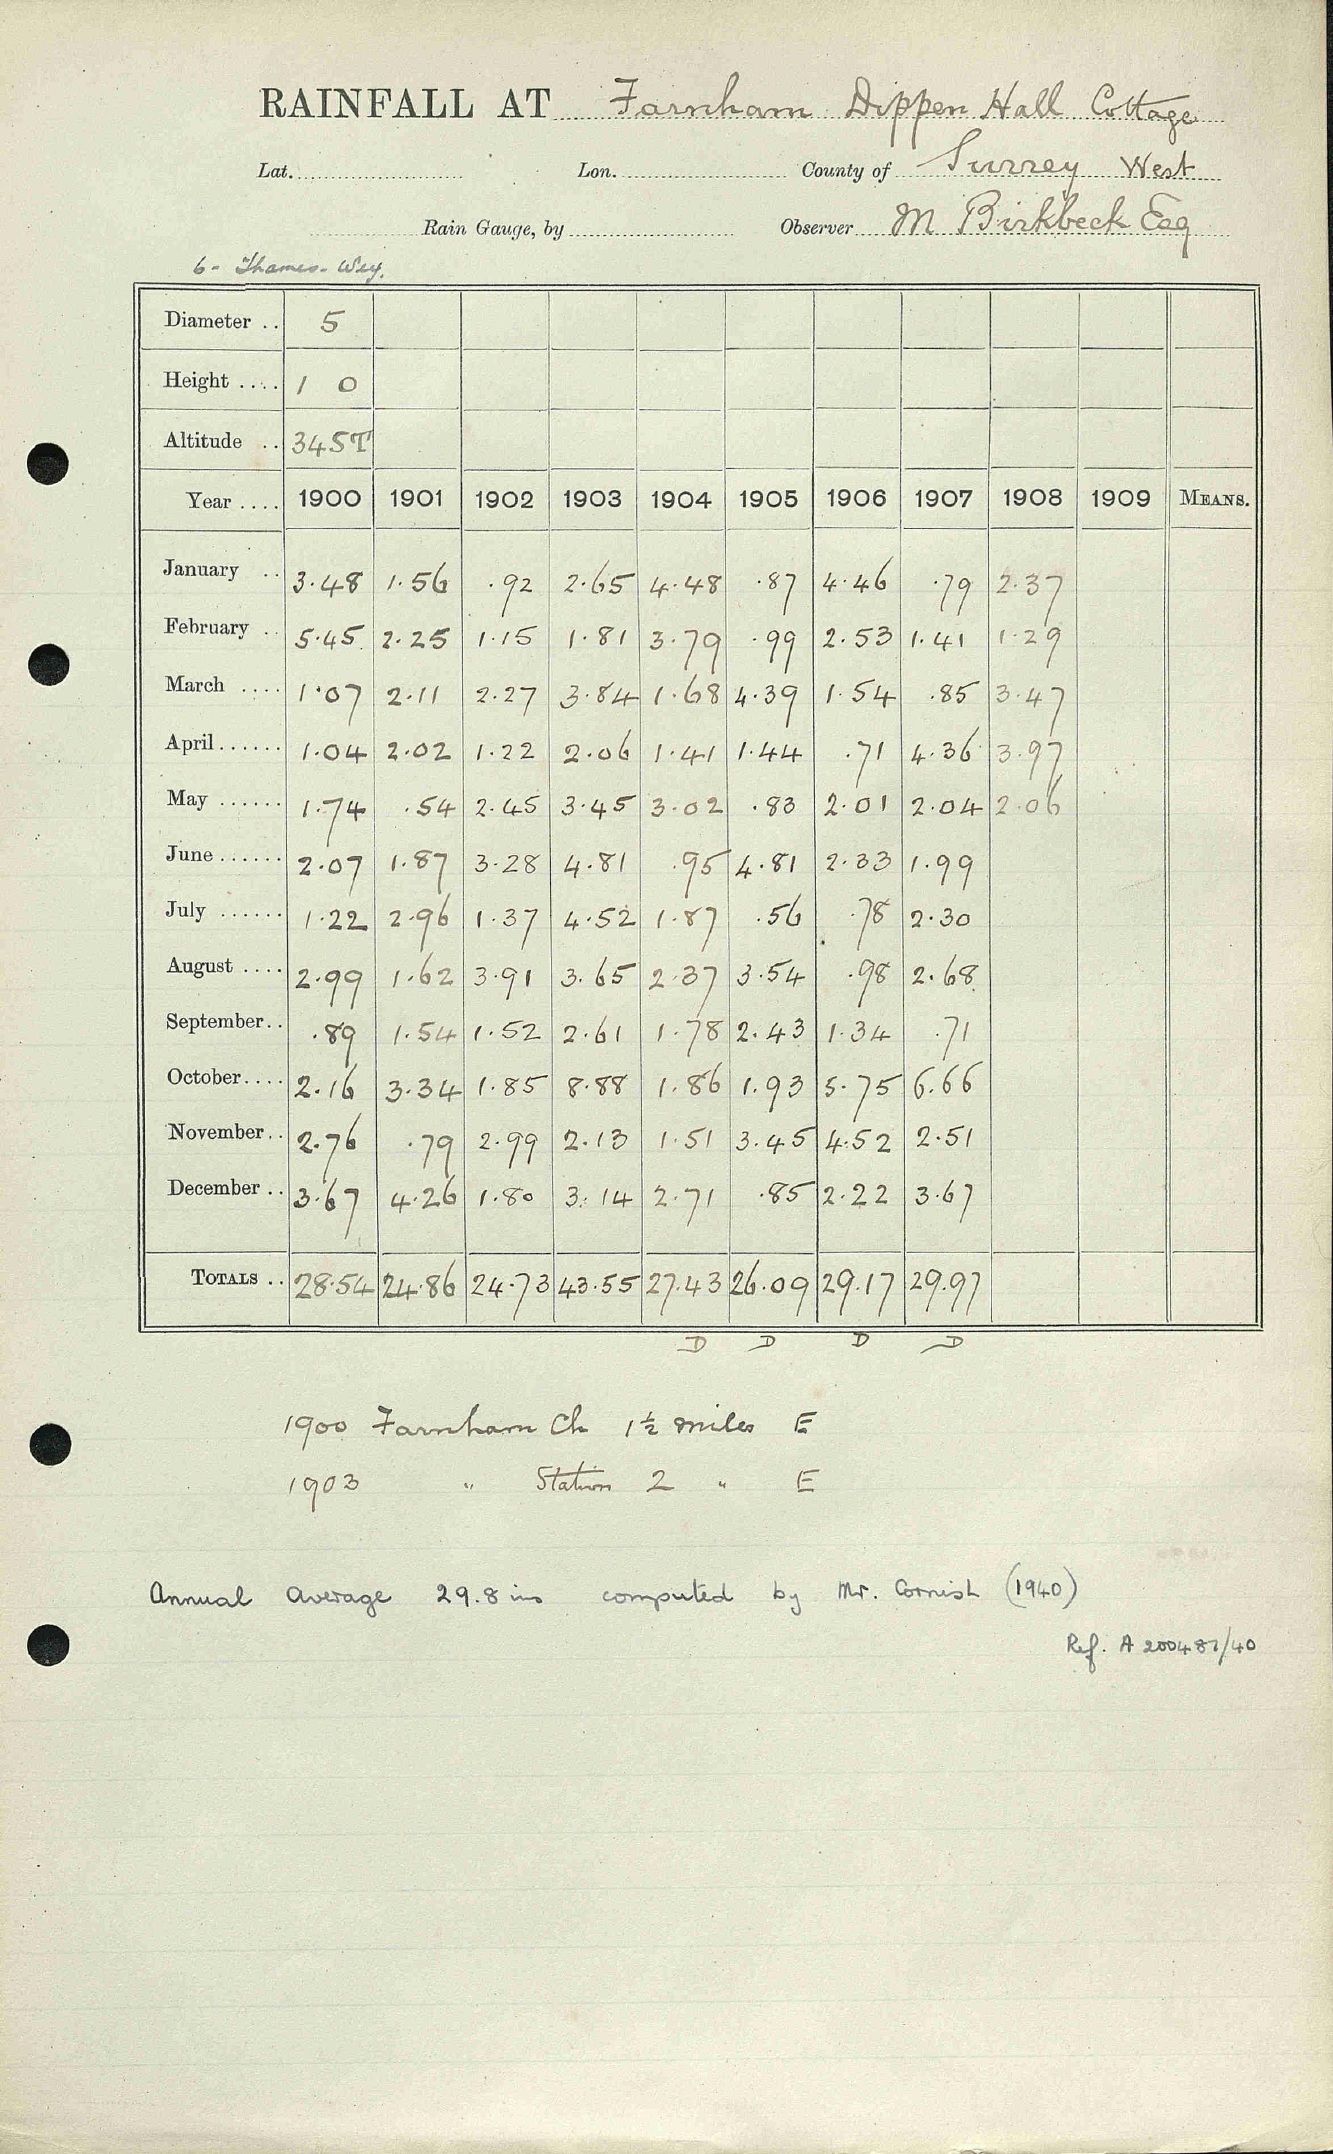 RAINFALL AT Farnham Dippen Hall Cottage
Lat. Lon. County of Surrey West
Rain Gauge, by Observer M Birkbeck Esq
6 - Thames - Wey.
Diameter .. 5
Height .... 1 0
Altitude .. 345T
Year .... 1900 1901 1902 1903 1904 1905 1906 1907 1908 1909 MEANS.
January .. 3.48 1.56 .92 2.65 4.48 .87 4.46 .79 2.37
February .. 5.45 2.25 1.15 1.81 3.79 .99 2.53 1.41 1.29
March .... 1.07 2.11 2.27 3.84 1.68 4.39 1.54 .85 3.47
April...... 1.04 2.02 1.22 2.06 1.41 1.44 .71 4.36 3.97
May ...... 1.74 .54 2.45 3.45 3.02 .83 2.01 2.04 2.06
June ...... 2.07 1.87 3.28 4.81 .95 4.81 2.33 1.99
July ...... 1.22 2.96 1.37 4.52 1.87 .56 .78 2.30
August .... 2.99 1.62 3.91 3.65 2.37 3.54 .98 2.68
September.. .89 1.54 1.52 2.61 1.78 2.43 1.34 .71
October.... 2.16 3.34 1.85 8.88 1.86 1.93 5.75 6.66
November.. 2.76 .79 2.99 2.13 1.51 3.45 4.52 2.51
December .. 3.67 4.26 1.80 3.14 2.71 .85 2.22 3.67
TOTALS .. 28.54 24.86 24.73 43.55 27.43 26.09 29.17 29.97
D D D D
1900 Farnham Ch 1½ miles E
1903 " Station 2 " E
Annual average 29.8 ins computed by Mr. Cornish (1940)
Ref. A 200487/40